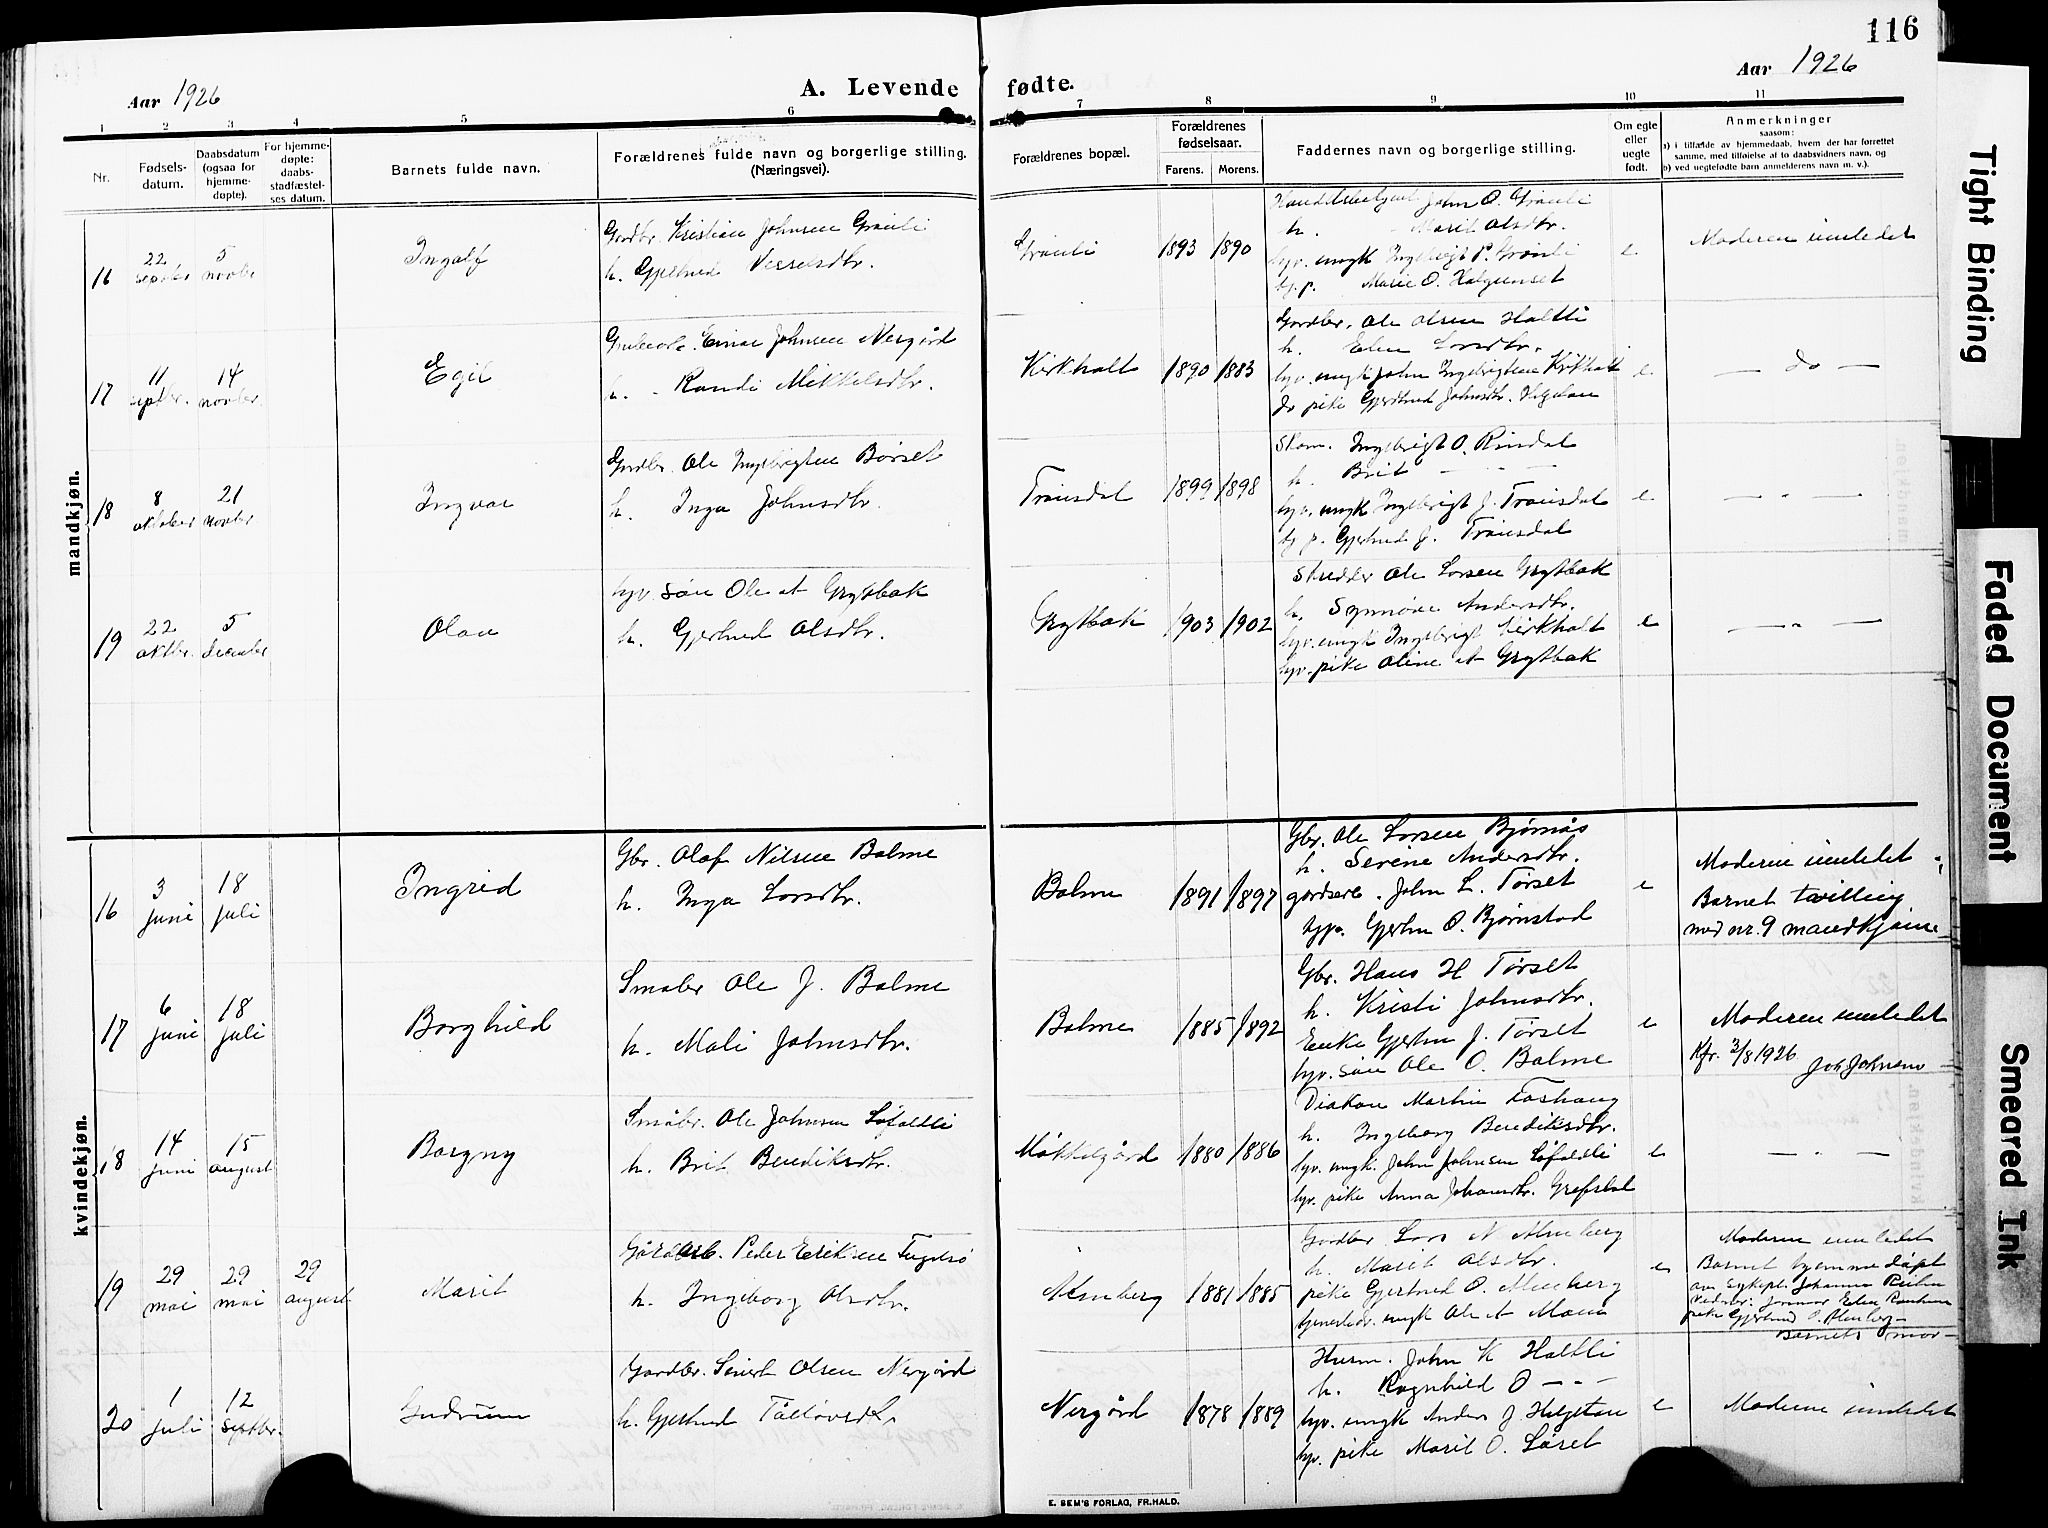 116
Aar 1926
A. Levende fødte.
Aar 1926
1 2 3 4 5 6 7 8 9 10 11
Nr.
Fødsels-
datum.
Daabsdatum
(ogsaa for
hjemme-
døpte).
For hjemme-
døpte:
daabs-
stadfæstel-
ses datum.
Barnets fulde navn.
Forældrenes fulde navn og borgerlige stilling.
(Næringsvei).
Forældrenes bopæl.
Forældrenes
fødselsaar.
Farens. Morens.
Faddernes navn og borgerlige stilling.
Om egte
eller
uegte
født.
Anmerkninger
saasom:
a) i tilfælde av hjemmedaab, hvem der har forrettet
samme, med tilføielse af to daabsvidners navn, og
b) ved uegtefødte barn anmelderens navn m. v.).
mandkjøn.
16
22 septbr
5 novbr
Ingolf
Gardbr. Kristian Johnsen Grønli
h. Gjertrud
Grønli
1893 1890
John O. Grønli
h. Marit Olsdtr.
hjv. ungk Ingebrigt P. Grønli
hj. p. Marie O. Halgunset
e
Moderen innledet
17
11 septbr.
14 novbr.
Egil
Einar Johnsen Nergård
h. Randi Mikkelsdtr.
Kirkholt
1890 1883
Gardbr. Ole Olsen Haltli
h. Elen Larsdtr.
hjv. ungk John Ingebrigtsen Kirkholt
do pike Gjertrud Johnsdtr.
e.
— do —
18
8 oktober
21 novbr
Ingvar
Gardbr. Ole Ingebrigtsen Børset
h. Inga Johnsdtr.
Trønsdal
1899 1898
Skom. Ingebrigt O. Rindal
h. Brit — " —
hjv. ungk Ingebrigt J. Trønsdal
hj p. Gjertrud J. Trønsdal
e.
— " —
19
22 oktbr.
5 december
Olav
hjv. søn Ole at Grytbak
h. Gjertrud Olsdtr.
Grytbak
1903 1902
Skredder Ole Larsen Grytbak
h. Synnøve Andersdtr.
hjv. ungk Ingebrigt Kirkholt
hjv. pike Oline at Grytbak
e
— " —
kvindekjøn.
16
3 juni
18 juli
Ingrid
Gbr. Olaf Nilsen Bolme
h. Inga Larsdtr.
Bolme
1891 1897
Gbr. Ole Larsen Bjørnås
h. Serine Andersdtr.
gardsarb. John L. Tørset
O. Bjørnstad
e
Moderen innledet
Barnet tvilling
med nr. 9 mandkjønn
17
6 juni
18 juli
Borghild
Småbr Ole J. Bolme
h. Mali Johnsdtr.
Bolme
1885 1892
Gbr. Hans H Tørset
h. Kristi Johnsdtr.
Enke Gjertru J. Tørset
hjv. søn Ole O. Bolme
e
Moderen innledet
Kfr. 3/8 1926
18
14 juni
15 august
Borgny
Småbr. Ole Johnsen Løfaldli
h. Brit Bendiksdtr.
Mökkelgård
1880 1886
Diakon Martin Foshaug
h. Ingeborg Bendiksdtr.
hjv. ungk. John Johnsen Løfaldli
hjv. pike Anna Johansdtr. Grefstad
e
— " —
19
29 mai
29 mai
29 august
Marit
Gårdarb. Peder Eriksen Fugelsø
h. Ingeborg Olsdtr.
Almberg
1881 1885
Gardbr Lars N. Almberg
h. Marit Olsdtr.
pike Gjertrud O. Almberg
ungk Ole A Moen
e
Moderen innledet
Barnet hjemmedøpt
av sykepl. Johanna
pike Gjertrud O. Almberg —
Barnets mor —
20
1 juli
12 septbr.
Gudrun
Gardbr. Sivert Olsen Nergård
h. Gjertrud
Nergård
1878 1889
Husm. John K Haltli
h. Ragnhild O — " —
hjv. ungk Anders J Helgetun
hjv. pike Marit O. Løset
e
Moderen innledet
E. SEM'S FORLAG, FR.HALD.
Tight Binding
Faded Document
Smeared Ink